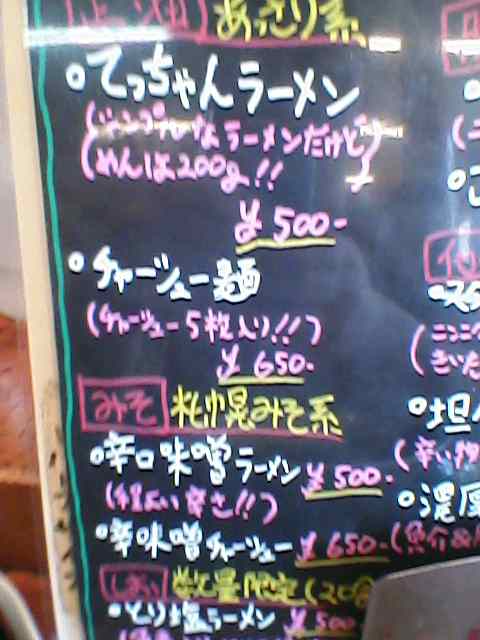 しょう油 あっさり系
てっちゃんラーメン
(シンプルなラーメンだけど
めんは200g!!)
¥500-
チャーシュー麺
(チャーシュー5枚入り!!)
¥650-
みそ 札幌みそ系
辛口味噌ラーメン ¥500-
(程よい辛さ!!)
辛味噌チャーシュー ¥650-
しお 数量限定(20食
とり塩ラーメン ¥500
(ニンニク
きいた
坦
(辛い物
濃厚
(魚介&